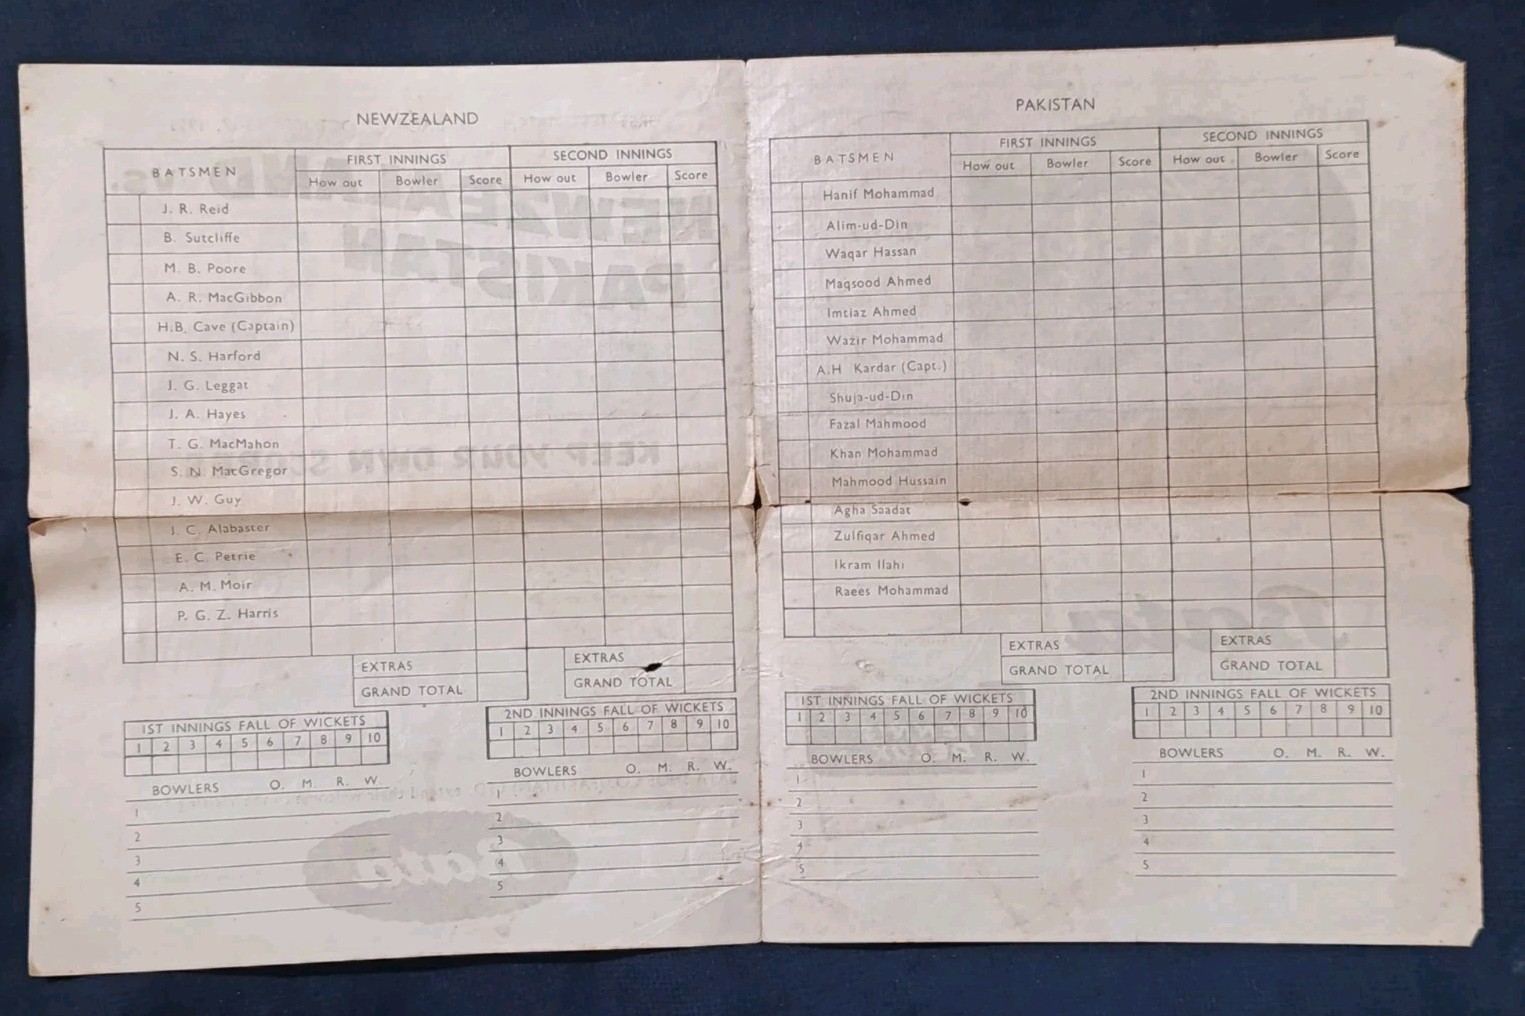 NEWZEALAND
BATSMEN FIRST INNINGS SECOND INNINGS
How out Bowler Score How out Bowler Score
J. R. Reid
B. Sutcliffe
M. B. Poore
A. R. MacGibbon
H.B. Cave (Captain)
N. S. Harford
J. G. Leggat
J. A. Hayes
T. G. MacMahon
S. N. MacGregor
J. W. Guy
J. C. Alabaster
E. C. Petrie
A. M. Moir
P. G. Z. Harris
EXTRAS EXTRAS
GRAND TOTAL GRAND TOTAL
1ST INNINGS FALL OF WICKETS 2ND INNINGS FALL OF WICKETS
1 2 3 4 5 6 7 8 9 10 1 2 3 4 5 6 7 8 9 10
BOWLERS O. M. R. W. BOWLERS O. M. R. W.
1 1
2 2
3 3
4 4
5 5
PAKISTAN
BATSMEN FIRST INNINGS SECOND INNINGS
How out Bowler Score How out Bowler Score
Hanif Mohammad
Alim-ud-Din
Waqar Hassan
Maqsood Ahmed
Imtiaz Ahmed
Wazir Mohammad
A.H Kardar (Capt.)
Shuja-ud-Din
Fazal Mahmood
Khan Mohammad
Mahmood Hussain
Agha Saadat
Zulfiqar Ahmed
Ikram Ilahi
Raees Mohammad
EXTRAS EXTRAS
GRAND TOTAL GRAND TOTAL
1ST INNINGS FALL OF WICKETS 2ND INNINGS FALL OF WICKETS
1 2 3 4 5 6 7 8 9 10 1 2 3 4 5 6 7 8 9 10
BOWLERS O. M. R. W. BOWLERS O. M. R. W.
1 1
2 2
3 3
4 4
5 5